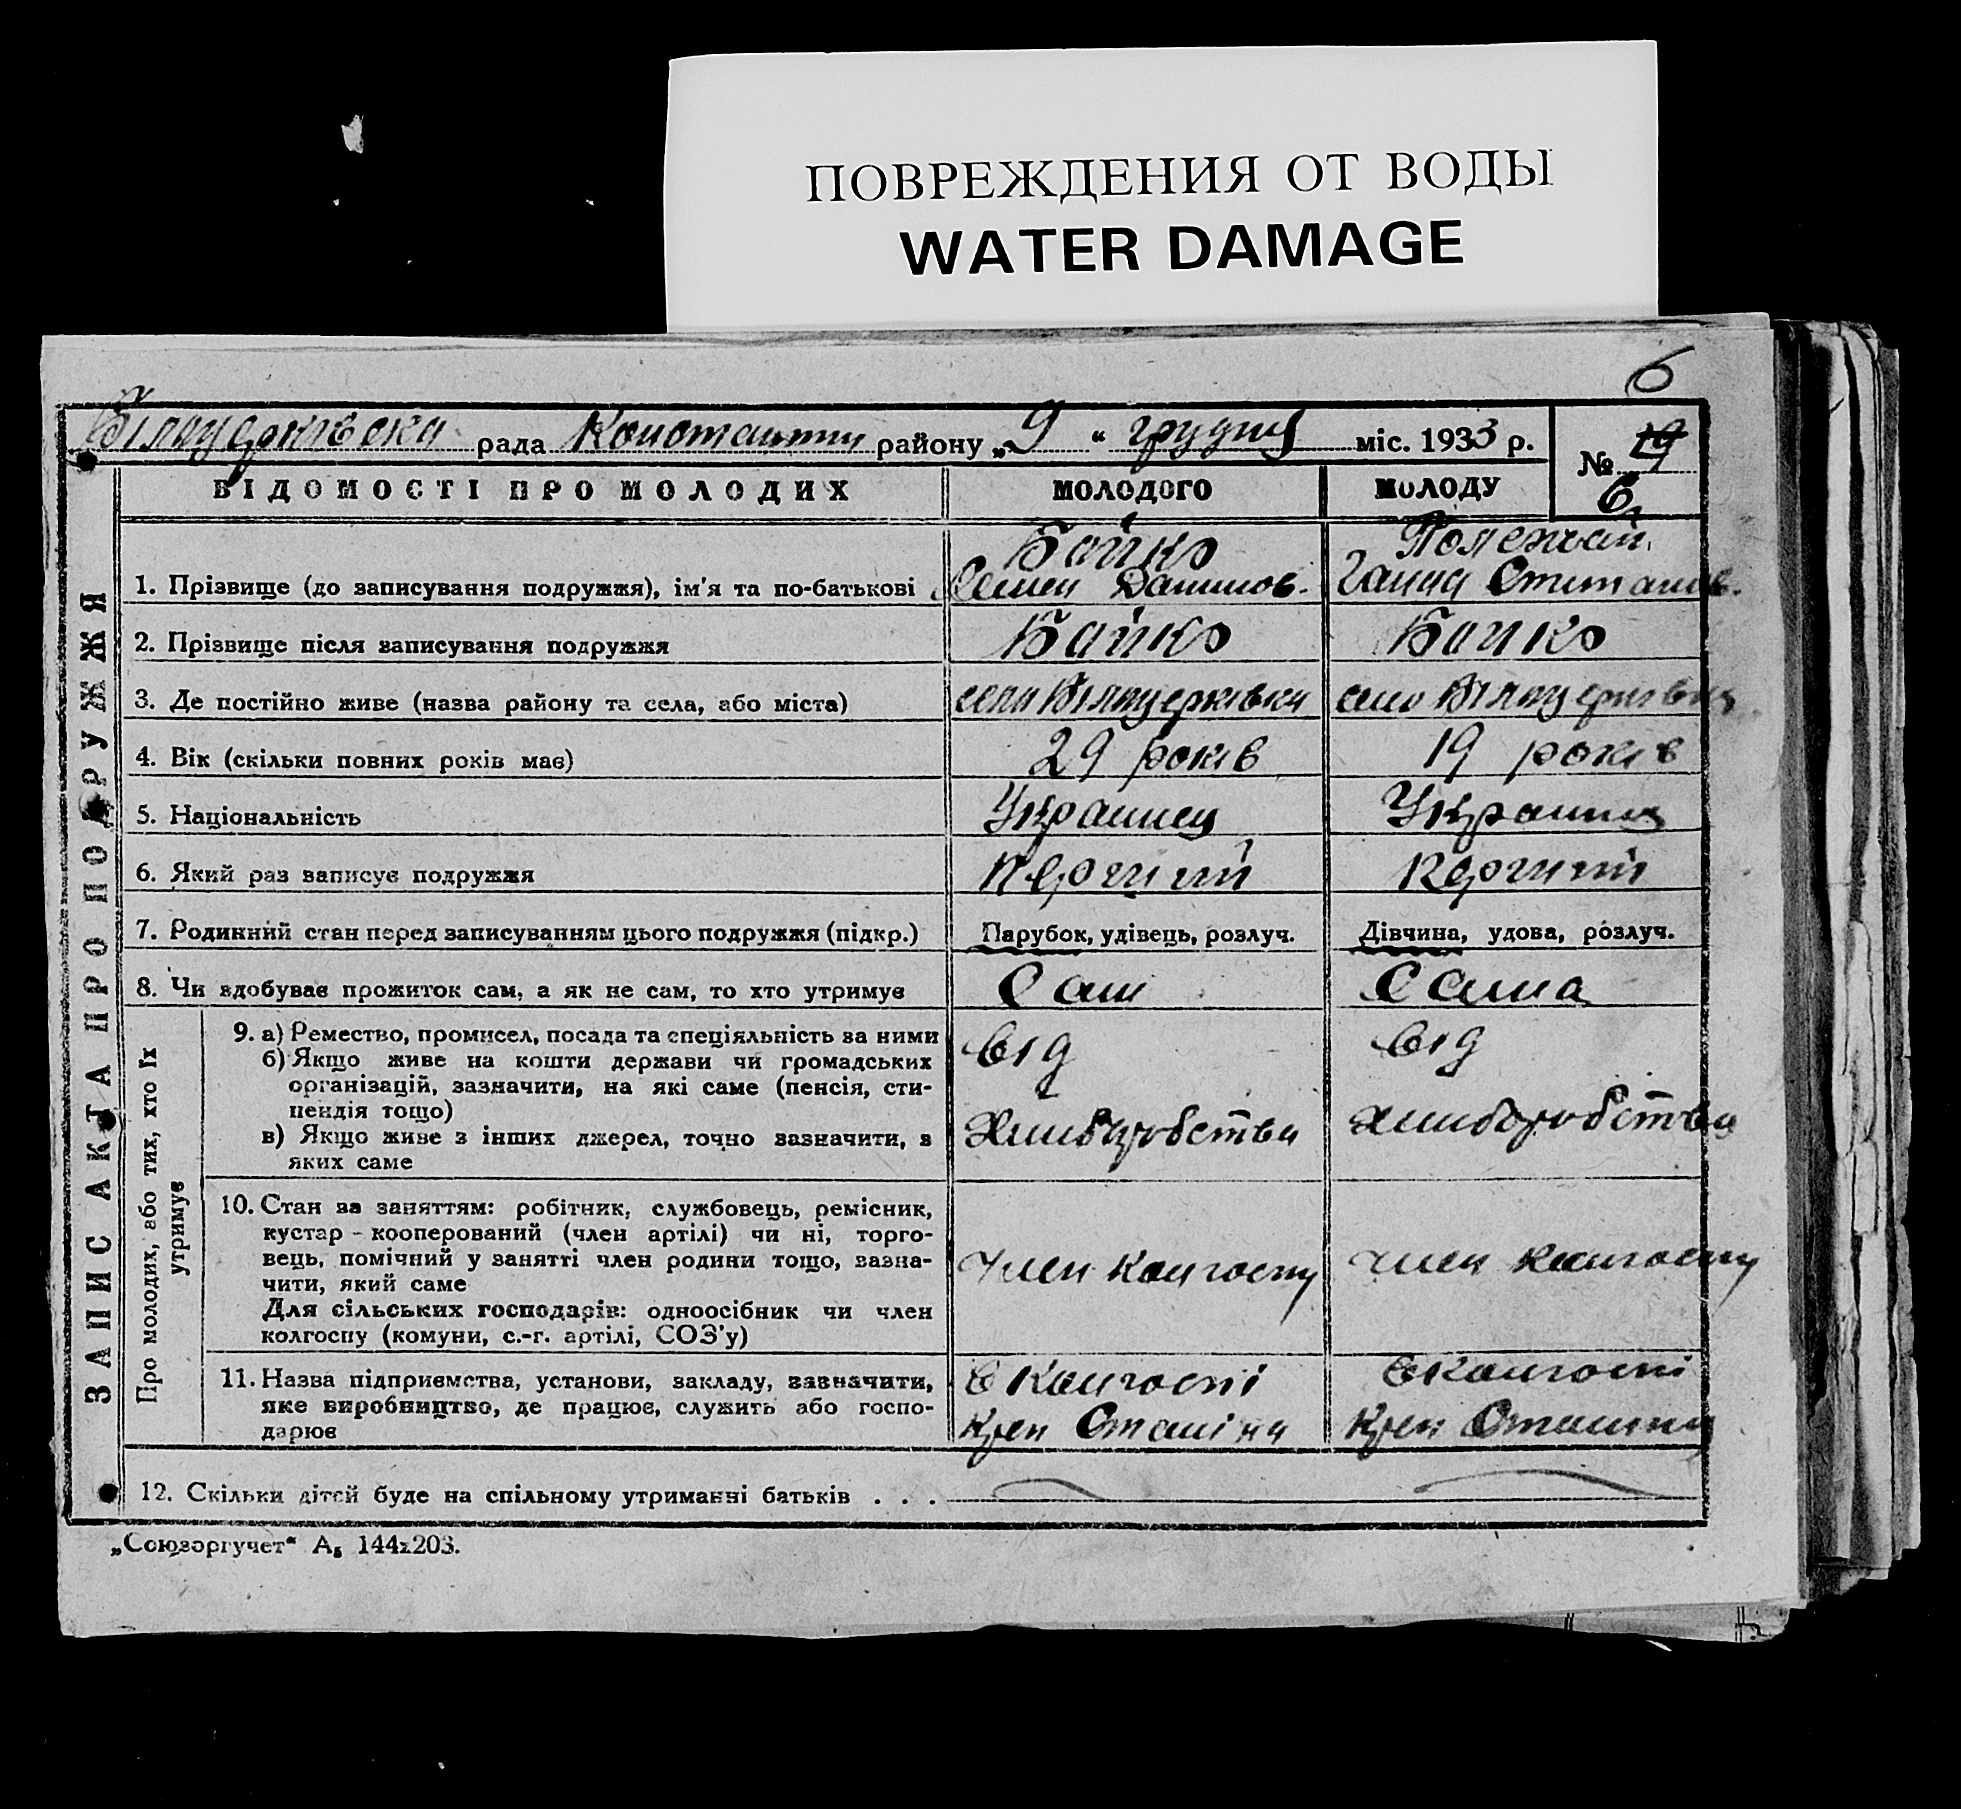 ПОВРЕЖДЕНИЯ ОТ ВОДЫ
WATER DAMAGE
6
рада района району „9“ грудня міс. 1933 р.
№ 19
6
ЗАПИС АКТА ПРО ПОДРУЖЖЯ
ВІДОМОСТІ ПРО МОЛОДИХ МОЛОДОГО МОЛОДУ
1. Прізвище (до записування подружжя), ім'я та по-батькові Бойко Семен Данилов. Ганна Степанов.
2. Прізвище після записування подружжя Бойко Бойко
3. Де постійно живе (назва району та села, або міста) село село
4. Вік (скільки повних років має) 29 років 19 років
5. Національність Украинец Украинка
6. Який раз записує подружжя Первий Первий
7. Родинний стан перед записуванням цього подружжя (підкр.) Парубок, удівець, розлуч. Дівчина, удова, розлуч.
8. Чи здобуває прожиток сам, а як не сам, то хто утримує Сам Сама
Про молодих, або тих, хто їх
утримує
9. а) Ремество, промисел, посада та спеціяльність за ними
б) Якщо живе на кошти держави чи громадських
організацій, зазначити, на які саме (пенсія, сти-
пендія тощо)
в) Якщо живе з інших джерел, точно зазначити, з
яких саме
від
Хлиборобства
від
хлиборобства
10. Стан за заняттям: робітник, службовець, ремісник,
кустар - кооперований (член артілі) чи ні, торго-
вець, помічний у занятті член родини тощо, зазна-
чити, який саме
Для сільських господарів: одноосібник чи член
колгоспу (комуни, с.-г. артілі, СОЗ'у)
член колгоспу член колгоспу
11. Назва підприємства, установи, закладу, зазначити,
яке виробництво, де працює, служить або госпо-
дарює
в колгоспі
Сталіна
в колгоспі
Сталина
12. Скільки дітей буде на спільному утриманні батьків . . .
„Союзоргучет“ А₅ 144х203.